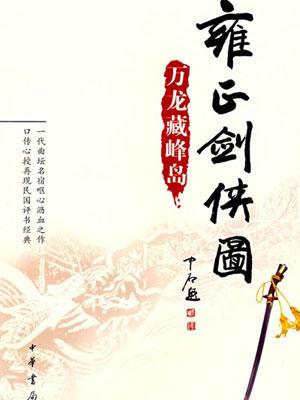 雍正剑侠圖
万龙藏峰岛
一代曲坛名宿呕心沥血之作
口传心授再现民国评书经典
中石题
中華書局